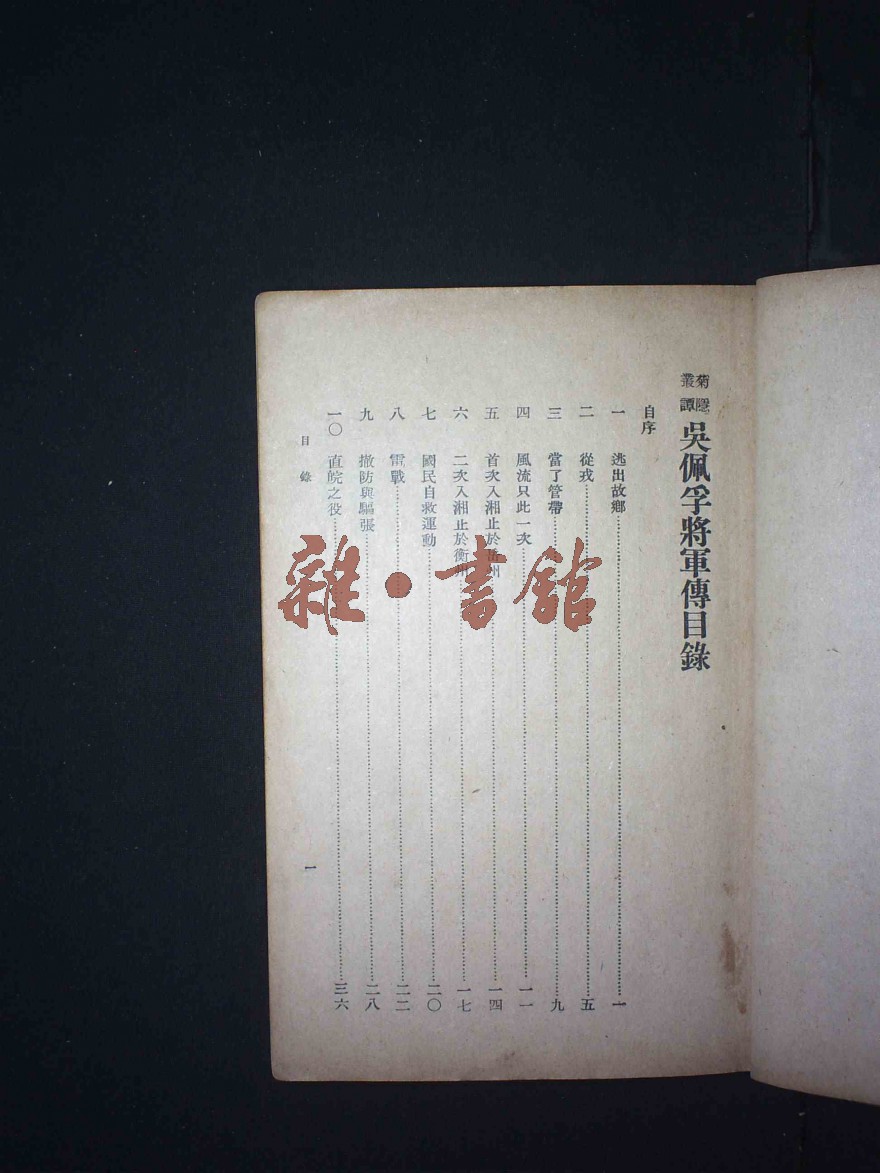 菊隱叢譚 吳佩孚將軍傳目錄
自序
一 逃出故鄉……一
二 從戎……五
三 當了管帶……九
四 風流只此一次……一一
五 首次入湘止於岳州……一四
六 二次入湘止於衡州……一七
七 國民自救運動……二〇
八 電戰……二二
九 撤防與驅張……二八
一〇 直皖之役……三六
目錄 一
雜·書館